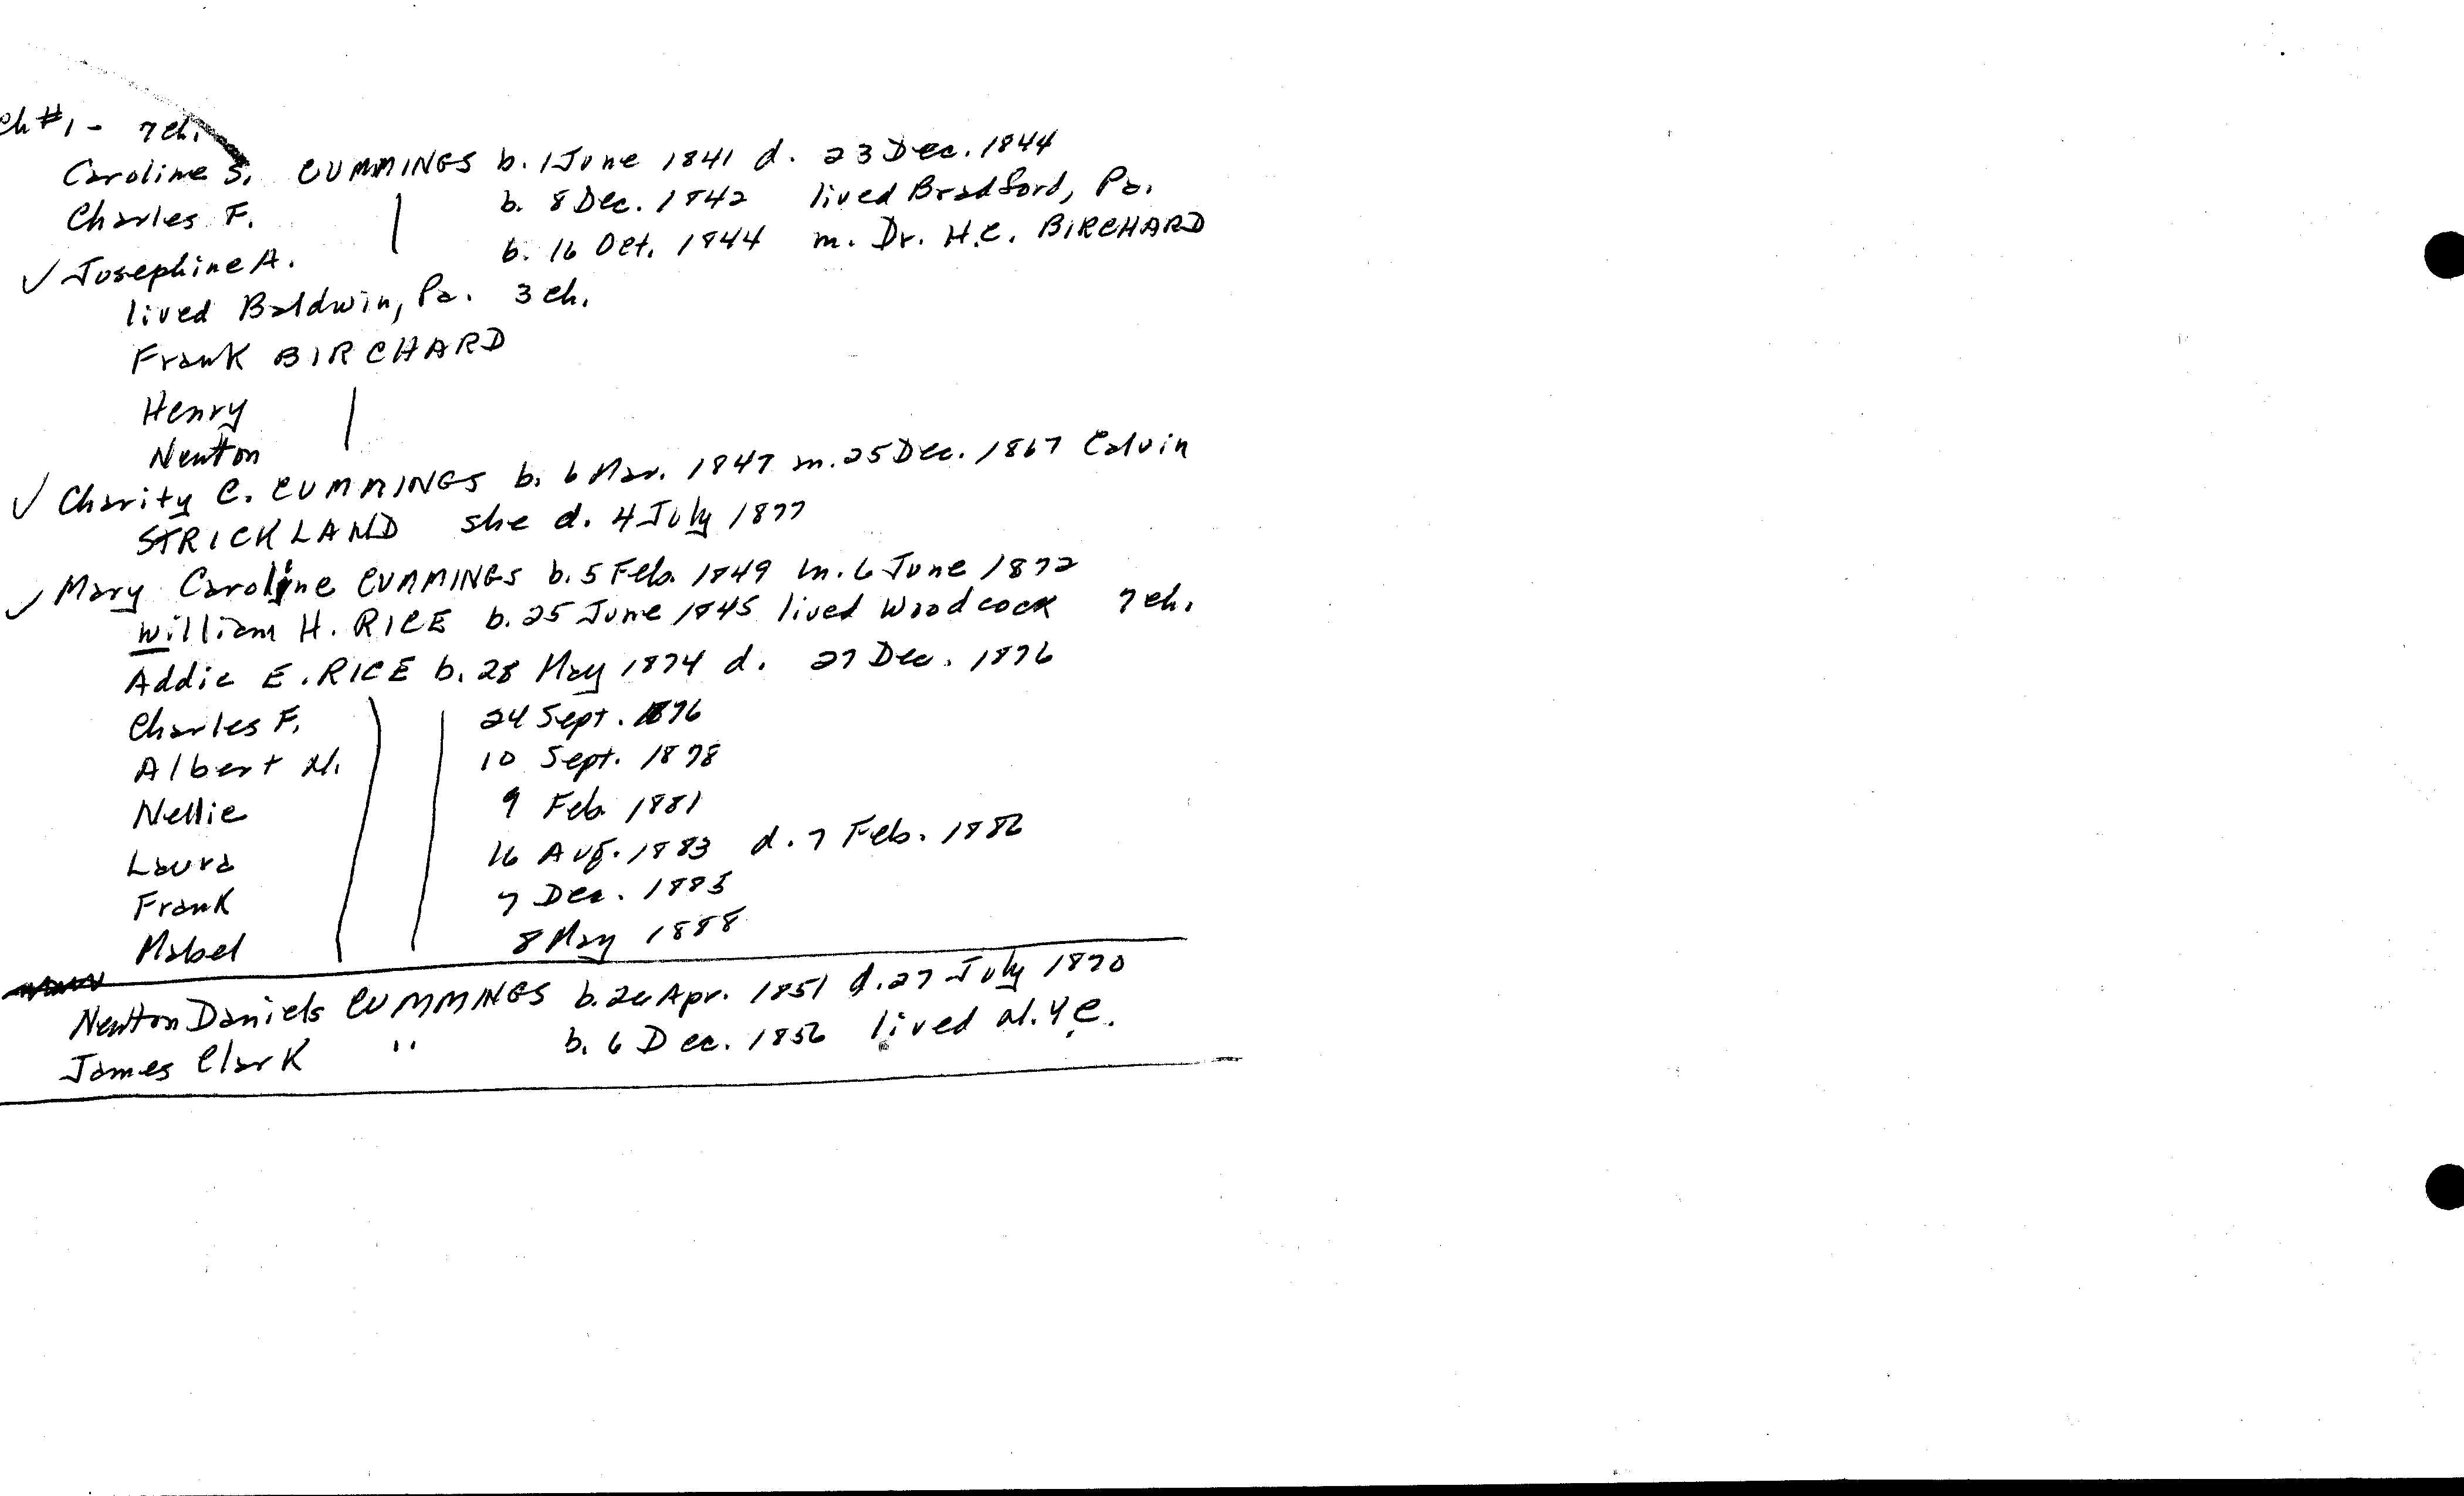 ch #1 - 7 ch.
Caroline S. CUMMINGS b. 1 June 1841 d. 23 Dec. 1844
Charles F. b. 8 Dec. 1842 lived Bradford, Pa.
✓ Josephine A. b. 16 Oct. 1844 m. Dr. H.C. BIRCHARD
lived Baldwin, Pa. 3 ch.
Frank BIRCHARD
Henry
Newton
✓ Charity C. CUMMINGS b. 6 Mar. 1847 m. 25 Dec. 1867 Calvin
STRICKLAND she d. 4 July 1877
✓ Mary Caroline CUMMINGS b. 5 Feb. 1849 m. 6 June 1872
William H. RICE b. 25 June 1845 lived Woodcock 7 ch.
Addie E. RICE b. 28 May 1874 d. 27 Dec. 1876
Charles F. 24 Sept. 1876
Albert N. 10 Sept. 1878
Nellie 9 Feb. 1881
Laura 16 Aug. 1883 d. 7 Feb. 1886
Frank 7 Dec. 1885
Mabel 8 May 1888
Newton Daniels CUMMINGS b. Apr. 1851 d. 27 July 1870
James Clark " b. 6 Dec. 1856 lived N.Y.C.